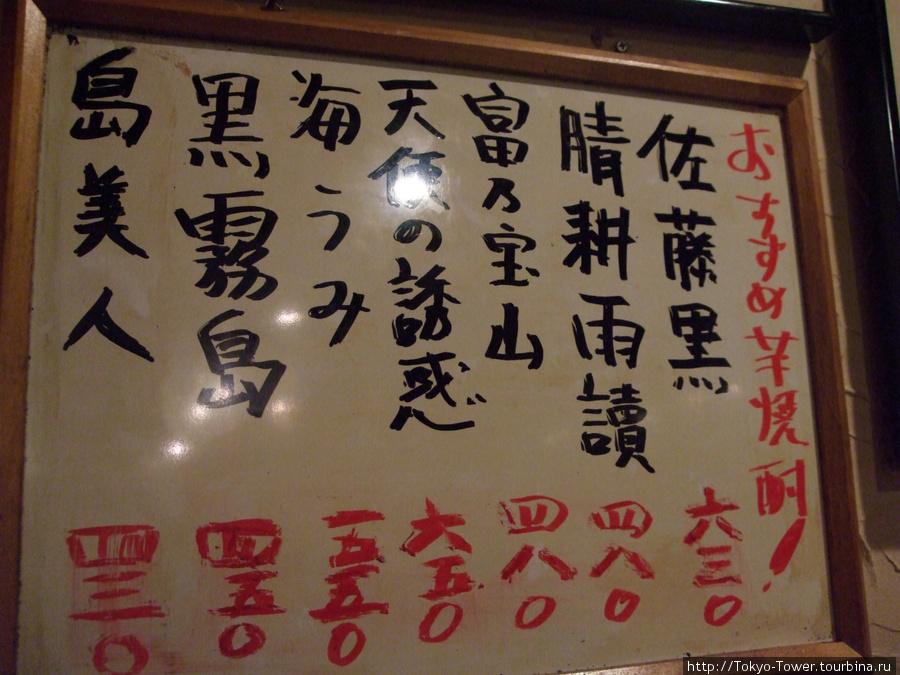 おすすめ芋焼酎!
佐藤黒 六三〇
晴耕雨讀 四八〇
富乃宝山 四八〇
天使の誘惑 六五〇
海うみ 五五〇
黒霧島 四五〇
島美人 四三〇
http://Tokyo-Tower.tourbina.ru